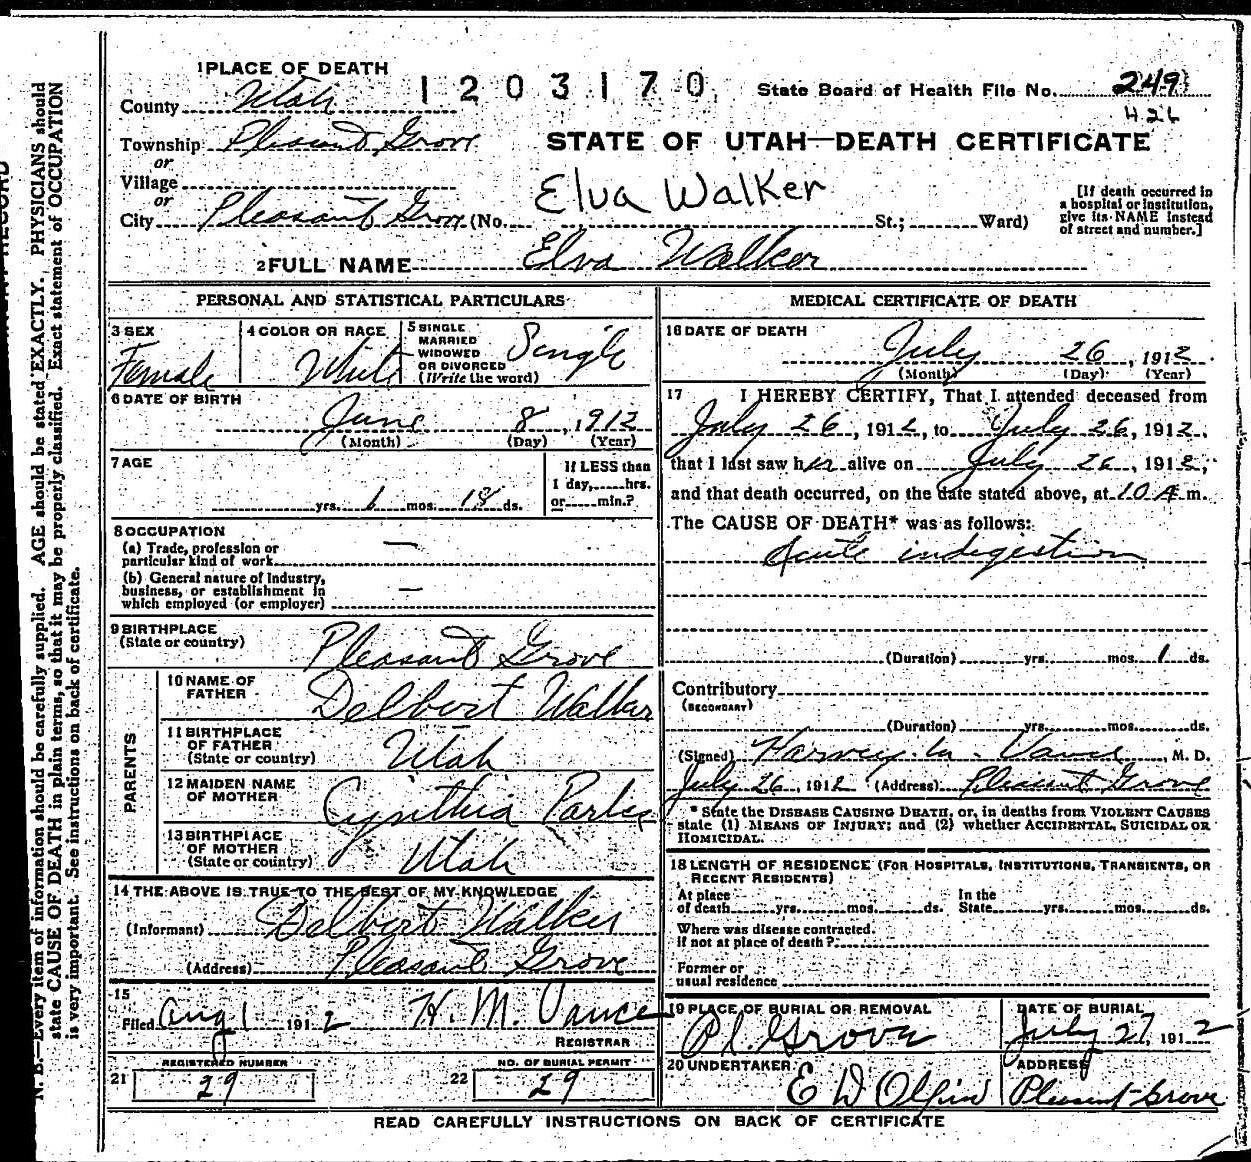 1 PLACE OF DEATH
1203170
State Board of Health File No. 249
426
County Utah
Township Pleasant Grove
STATE OF UTAH—DEATH CERTIFICATE
or
Village
or
City Pleasant Grove (No. Elva Walker St.; Ward)
[If death occurred in
a hospital or institution,
give its NAME instead
of street and number.]
2 FULL NAME Elva Walker
PERSONAL AND STATISTICAL PARTICULARS
3 SEX
Female
4 COLOR OR RACE
White
5 SINGLE
MARRIED
WIDOWED
OR DIVORCED
(Write the word)
Single
6 DATE OF BIRTH
June 8, 1912
(Month) (Day) (Year)
7 AGE
yrs. 1 mos. 18 ds.
If LESS than
1 day, hrs.
or min.?
8 OCCUPATION
(a) Trade, profession or
particular kind of work —
(b) General nature of Industry,
business, or establishment in
which employed (or employer) —
9 BIRTHPLACE
(State or country) Pleasant Grove
PARENTS
10 NAME OF
FATHER Delbert Walker
11 BIRTHPLACE
OF FATHER
(State or country) Utah
12 MAIDEN NAME
OF MOTHER Cynthia Parker
13 BIRTHPLACE
OF MOTHER
(State or country) Utah
14 THE ABOVE IS TRUE TO THE BEST OF MY KNOWLEDGE
(Informant) Delbert Walker
(Address) Pleasant Grove
15
Filed Aug 1 1912 H. M. Vance
REGISTRAR
REGISTERED NUMBER
21 29
NO. OF BURIAL PERMIT
22 29
MEDICAL CERTIFICATE OF DEATH
16 DATE OF DEATH
July 26, 1912
(Month) (Day) (Year)
17 I HEREBY CERTIFY, That I attended deceased from
July 26, 1912, to July 26, 1912,
that I last saw her alive on July 26, 1912,
and that death occurred, on the date stated above, at 10 A m.
The CAUSE OF DEATH* was as follows:
Acute indigestion
(Duration) yrs. mos. 1 ds.
Contributory
(SECONDARY)
(Duration) yrs. mos. ds.
(Signed) Harvey M. Vance, M. D.
July 26, 1912 (Address) Pleasant Grove
* State the DISEASE CAUSING DEATH, or, in deaths from VIOLENT CAUSES
state (1) MEANS OF INJURY; and (2) whether ACCIDENTAL, SUICIDAL OR
HOMICIDAL.
18 LENGTH OF RESIDENCE (FOR HOSPITALS, INSTITUTIONS, TRANSIENTS, OR
RECENT RESIDENTS)
At place
of death yrs. mos. ds.
In the
State yrs. mos. ds.
Where was disease contracted
if not at place of death?
Former or
usual residence
19 PLACE OF BURIAL OR REMOVAL
Pl. Grove
DATE OF BURIAL
July 27, 1912
20 UNDERTAKER
E D Olpin
ADDRESS
Pleasant Grove
READ CAREFULLY INSTRUCTIONS ON BACK OF CERTIFICATE
N. B.—Every item of information should be carefully supplied. AGE should be stated EXACTLY. PHYSICIANS should
state CAUSE OF DEATH in plain terms, so that it may be properly classified. Exact statement of OCCUPATION
is very important. See instructions on back of certificate.